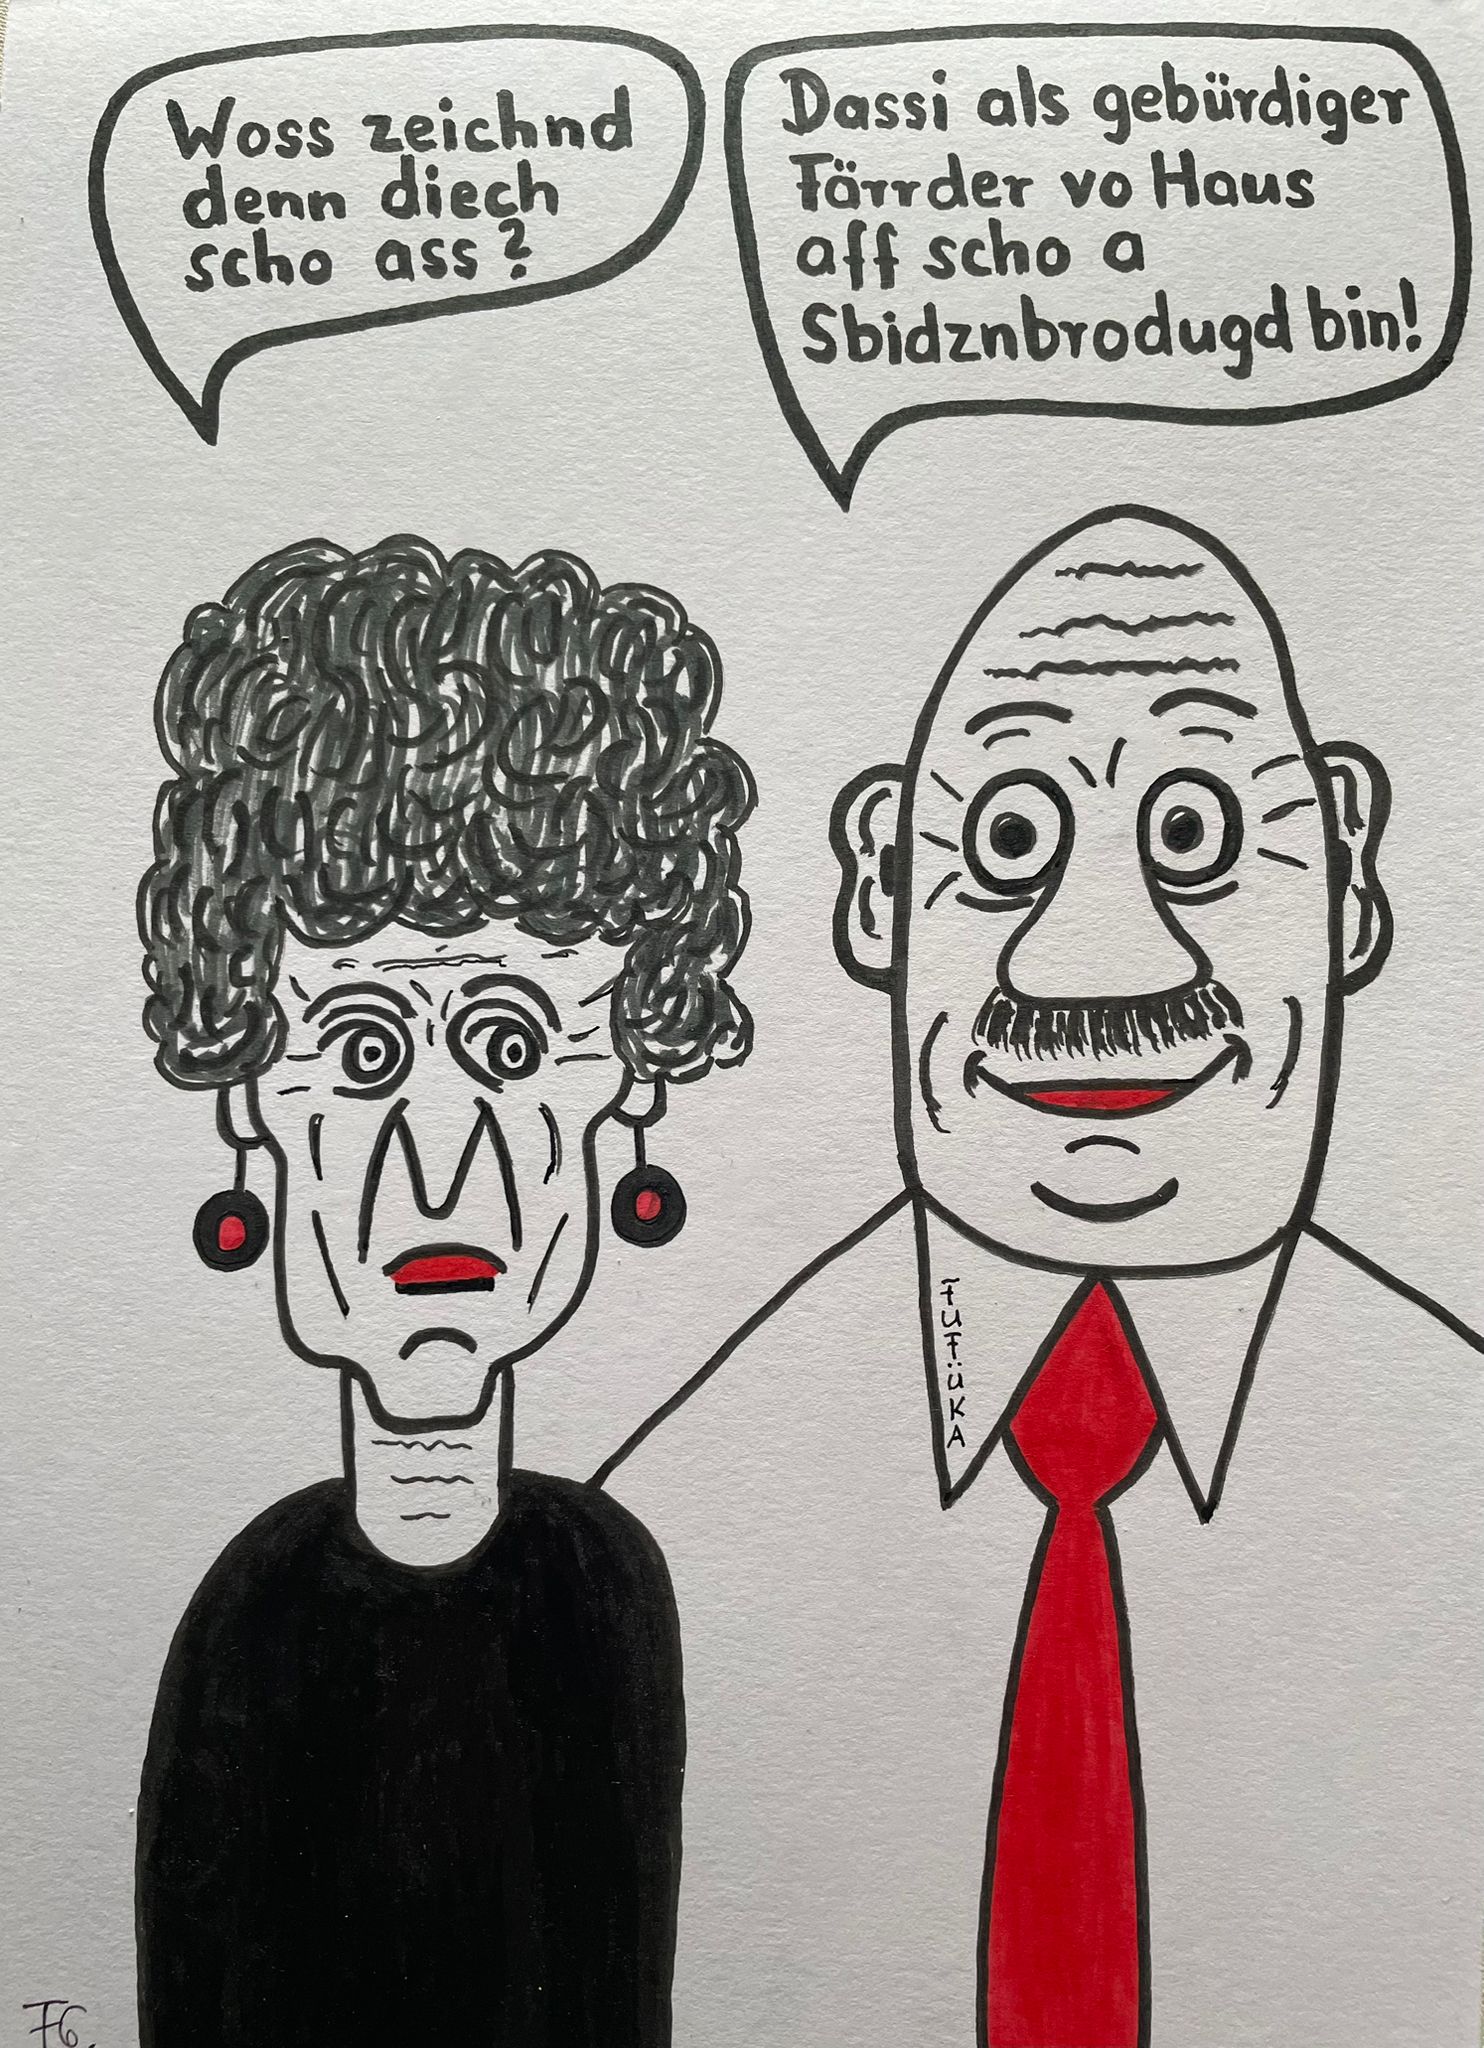 Woss zeichnd
denn diech
scho ass?
Dassi als gebürdiger
Färrder vo Haus
aff scho a
Sbidznbrodugd bin!
FUFÜKA
FG.